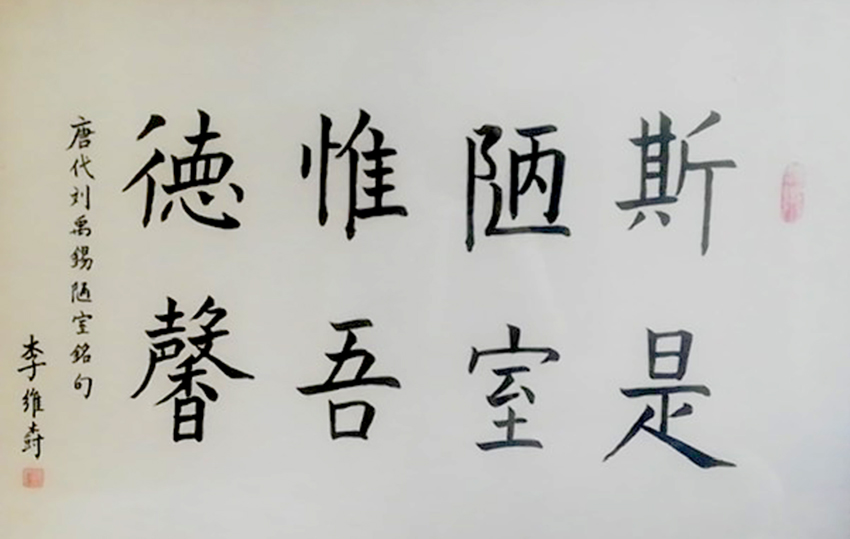 斯是
陋室
惟吾
德馨
唐代刘禹锡陋室铭句
李维